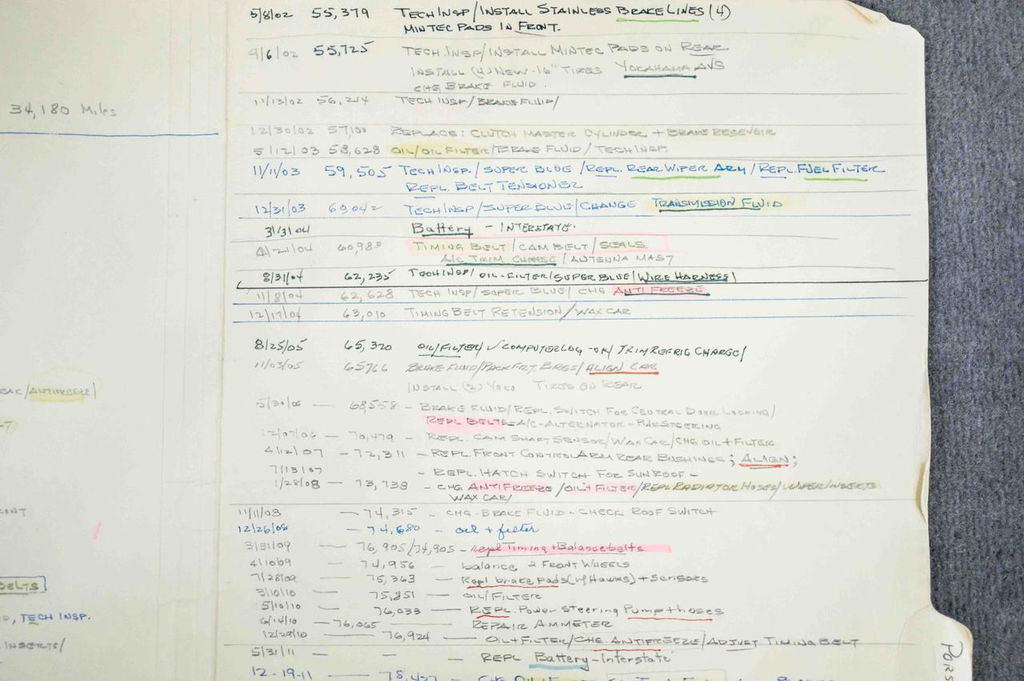 34,180 Miles
ANTIFREEZE
BELTS
, TECH INSP.
INSERTS/
5/8/02 55,379 TECH INSP/INSTALL STAINLESS BRAKE LINES (4)
MINTEC PADS IN FRONT.
9/6/02 55,725 TECH INSP/INSTALL MINTEC PADS ON REAR
INSTALL (4) NEW-16" TIRES YOKAHAMA AVS
CHG BRAKE FLUID.
11/13/02 56,214 TECH INSP/BRAKE FLUID/
12/30/02 57,100 REPLACE: CLUTCH MASTER CYLINDER + BRAKE RESEVOIR
5/12/03 58,628 OIL/OIL FILTER/BRAKE FLUID/TECH INSP.
11/11/03 59,505 TECH INSP./SUPER BLUE/REPL. REAR WIPER ARM/REPL. FUEL FILTER
REPL. BELT TENSIONER
12/31/03 60,042 TECH INSP/SUPER BLUE/CHANGE TRANSMISSION FLUID
3/31/04 Battery - INTERSTATE.
4/21/04 60,983 TIMING BELT/CAM BELT/SEALS
A/C TRIM CHARGE/ANTENNA MAST
8/31/04 62,235 TECH INSP/OIL-FILTER/SUPER BLUE/WIRE HARNESS/
11/8/04 62,628 TECH INSP/SUPER BLUE/CHG ANTIFREEZE
12/17/04 63,010 TIMING BELT RETENSION/WAX CAR
8/25/05 65,320 OIL/FILTER/✓COMPUTER LOG-OK/TRIM REFRIG CHARGE/
11/03/05 65766 BRAKE FLUID/PACK FRT BRGS/ALIGN CAR
INSTALL (2) YOKO TIRES ON REAR
5/30/06 — 68,558 - BRAKE FLUID/REPL. SWITCH FOR CENTRAL DOOR LOCKING/
REPL BELTS A/C-ALTERNATOR-PWR STEERING
12/07/06 — 70,479 - REPL. CAM SHAFT SENSOR/WAX CAR/CHG OIL + FILTER
4/12/07 — 72,311 - REPL FRONT CONTROL ARM REAR BUSHINGS; ALIGN;
7/13/07 - REPL. HATCH SWITCH FOR SUNROOF -
1/28/08 — 73,738 - CHG ANTIFREEZE/OIL + FILTER/REPL RADIATOR HOSES/WIPER INSERTS
WAX CAR/
11/11/08 — 74,315 - CHG-BRAKE FLUID - CHECK ROOF SWITCH
12/26/08 — 74,680 - oil + filter
3/31/09 — 76,905/74,905 - Repl Timing + Balance belts
4/10/09 — 74,956 - balance 2 FRONT WHEELS
7/28/09 — 75,363 — Repl brake pads (w/Hawks) + Sensors
3/10/10 — 75,851 — OIL/FILTER
5/10/10 — 76,033 — REPL. Power Steering Pump + hoses
6/14/10 — 76,065 — REPAIR AMMETER
12/29/10 — 76,924 — OIL + FILTER/CHG. ANTIFREEZE/ADJUST TIMING BELT
5/31/11 — — — REPL Battery - Interstate
12-19-11 — 78,457 -